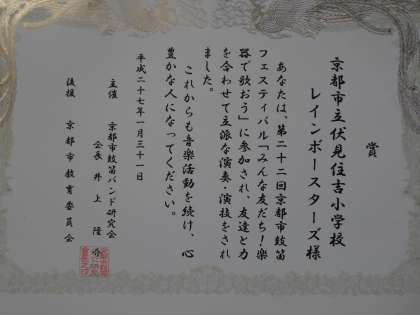 賞
京都市立伏見住吉小学校
レインボースターズ様
あなたは、第二十二回京都市鼓笛
フェスティバル「みんな友だち!楽
器で歌おう」に参加され、友達と力
を合わせて立派な演奏・演技をされ
ました。
これからも音楽活動を続け、心
豊かな人になってください。
平成二十七年一月三十一日
主催 京都市鼓笛バンド研究会
会長 井上隆
後援 京都市教育委員会